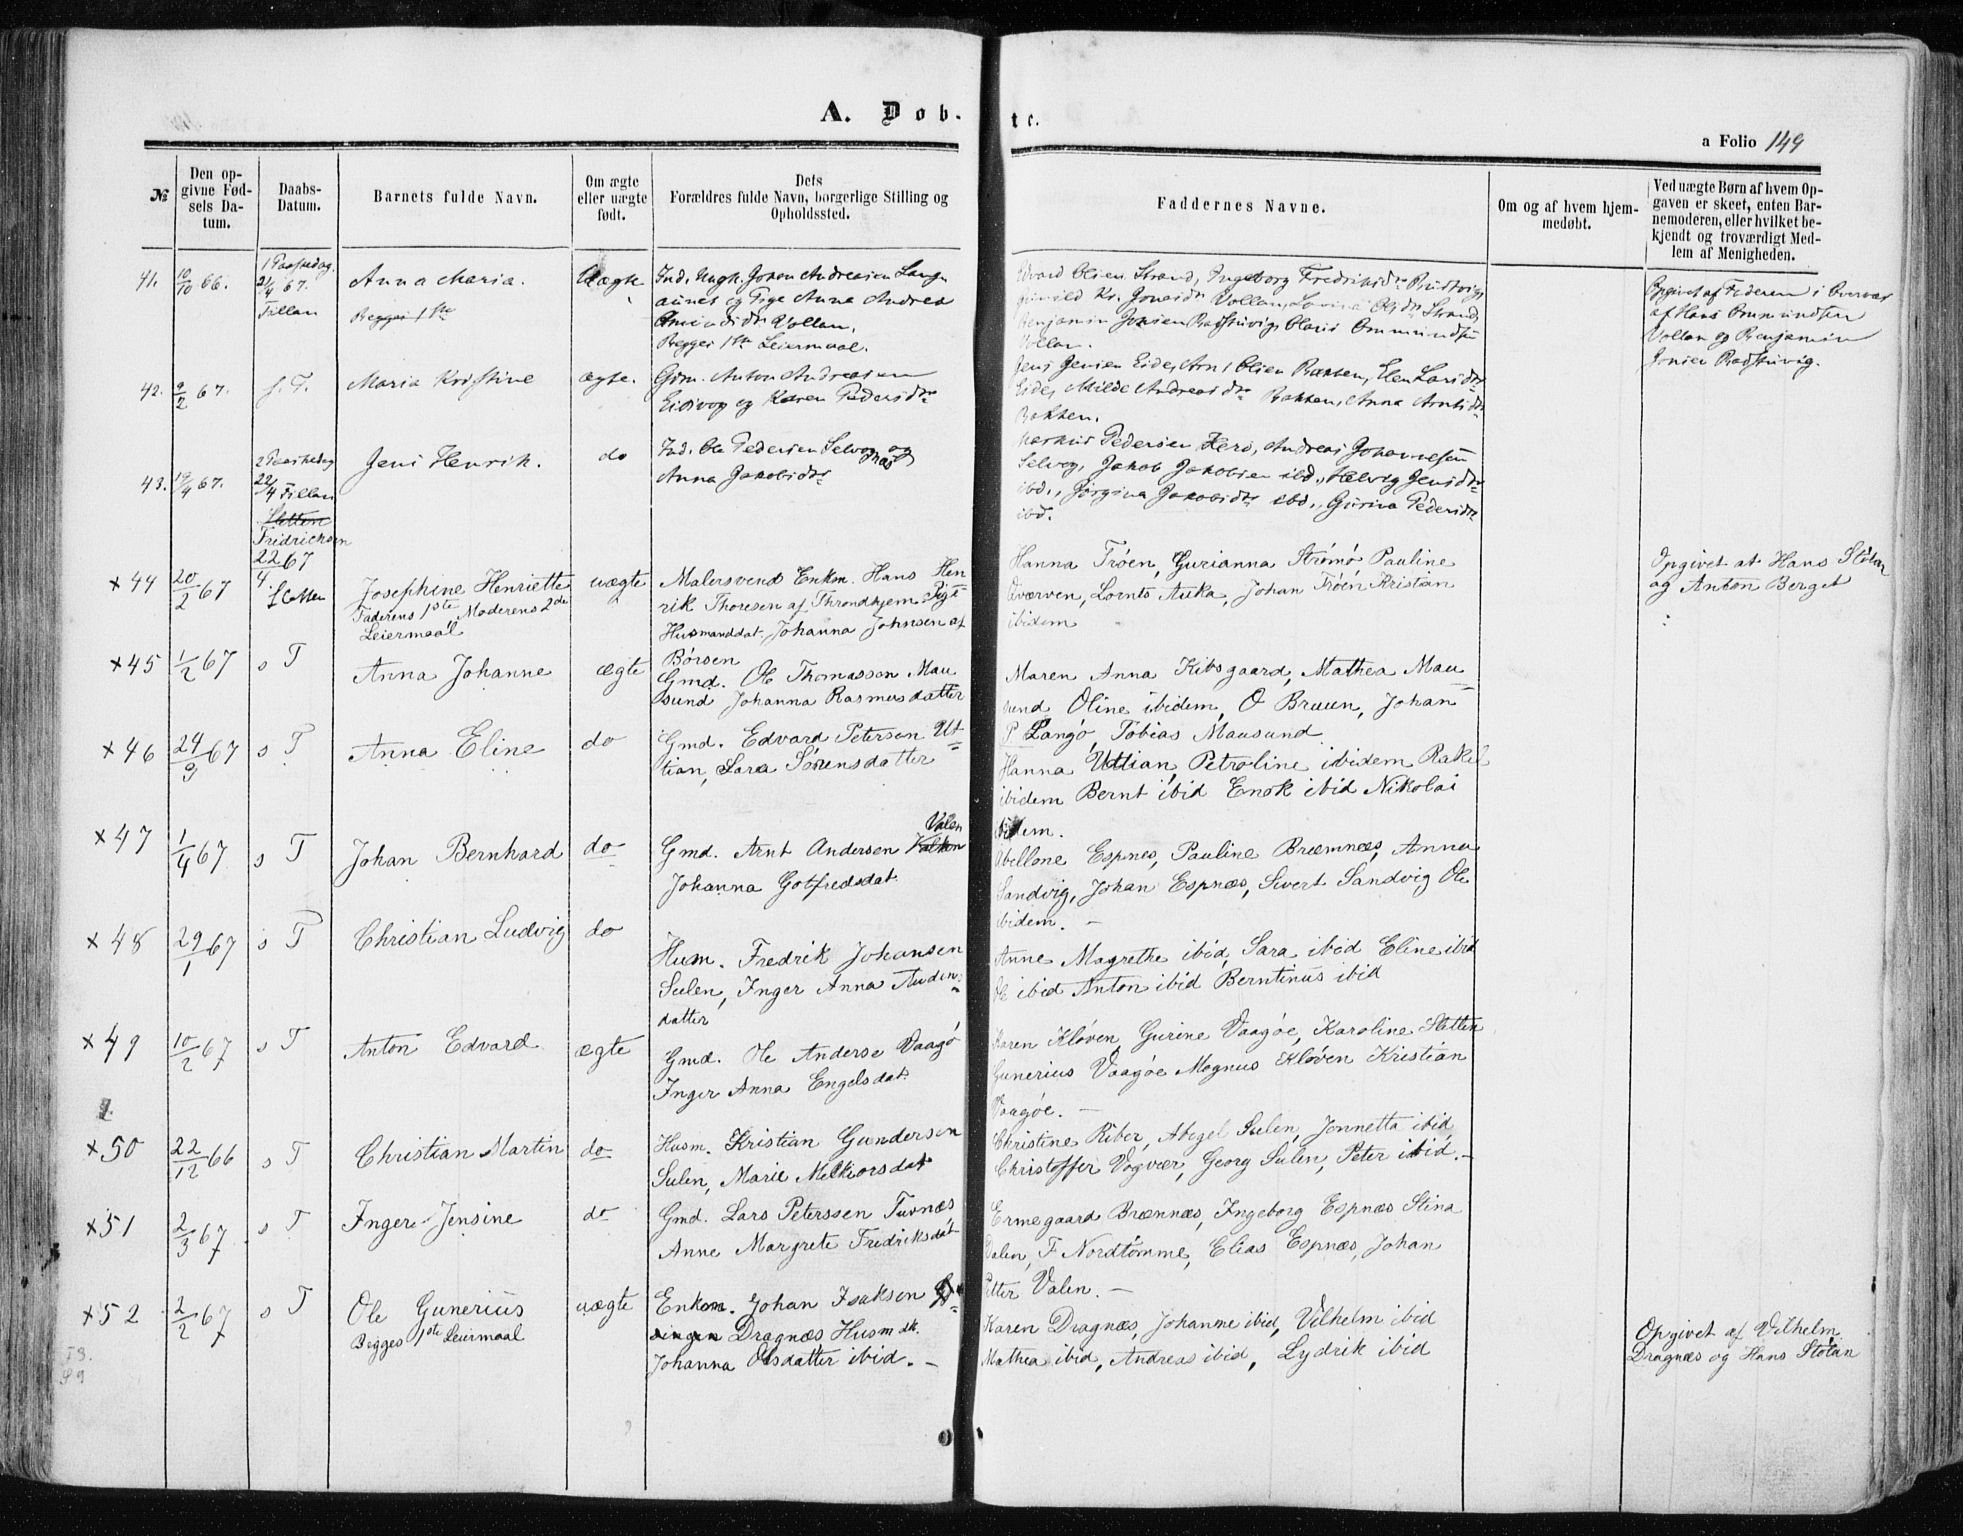 A. Døb. te.
a Folio 149
№
Den op-
givne Fød-
sels Da-
tum.
Daabs-
Datum.
Barnets fulde Navn.
Om ægte
eller uægte
født.
Dets
Forældres fulde Navn, borgerlige Stilling og
Opholdssted.
Faddernes Navne.
Om og af hvem hjem-
medøbt.
Ved uægte Børn af hvem Op-
gaven er skeet, enten Bar-
nemoderen, eller hvilket be-
kjendt og troværdigt Med-
lem af Menigheden.
41.
10/10 66.
1 Paaskedag
21/4 67.
Fillan
Anna Maria.
Begges 1ste
Uægte
Ind. Ungk. Johan Andreasen
og Pige Anna Andrea
Vollan.
Begges 1ste Leiermaal.
Edvard Olsen Strand, Ingeborg Fredriksdr
Kr. Jonsdr Vollan, Olsdr Strand
Benjamin Jonsen
Vollan.
Opgivet af Faderen i Overvær
af Hans Ommundsen
Vollan og Benjamin
Jonsen
42.
9/2 67.
s. T.
Maria Kristine
ægte.
Gm. Anton Andreasen
og Karen Pedersdr
Jens Jensen Eide, Arnt Olsen Bakken, Elen Larsdr
Eide, Milde Andreasdr Bakken, Anna Arntsdr
Bakken.
43.
19/4 67.
2 Paaskedag
22/4 Fillan
Jens Henrik.
do
Ind. Ole Pedersen Selvog og
Anna Jakobsdr
Markus Pedersen Andreas Johannesen
Selvog, Jakob Jakobsen ibd., Helvig Jensdr
ibd., Jørgina Jakobsdr ibd., Gurina Pedersdr
ibd.
Sletten
×44
20/2 67
22/4 67
Sletten
Josephine Henriette
Faderens 1ste Moderens 2de
Leiermaal
uægte
Malersvend Enkm. Hans Hen
rik Thoresen af Throndhjem Pige
Husmanddat. Johanna Johnsen af
Børsen
Hanna Trøen, Gurianna Strømø Pauline
Qværven, Lornts Auka, Johan Trøen Kristan
ibidem
Opgivet at Hans Stølan
og Anton Berget
×45
1/2 67
s T
Anna Johanne
ægte
Gmd. Ole Thomasson Mau
sund Johanna Rasmusdatter
Maren Anna Kibsgaard, Mathea Mau
sund Oline ibidem, O Bruun, Johan
P Langø, Tobias Mausund
×46
24/3 67
s T
Anna Eline
do
Gmd. Edvard Petersen Ut
tian, Sara Sørensdatter
Hanna Uttian, Petroline ibidem Rakel
ibidem Bernt ibid Enok ibid Nikolai
ibidem.
×47
1/4 67
s T
Johan Bernhard
do
Valen
Gmd. Arnt Andersen
Johanna Gotfredsdat
Abellone Espnes, Pauline Bræmnæs, Anna
Sandvig, Johan Espnæs, Sivert Sandvig Ole
ibidem. –
×48
29/1 67
s T
Christian Ludvig
do
Husm. Fredrik Johansen
Sulen, Inger Anna Audin
datter
Anne Magrethe ibid, Sara ibid Eline ibid
Ole ibid Anton ibid Berntinus ibid
×49
10/2 67
s T
Anton Edvard
ægte
Gmd. Ole Anderse Vaagø
Inger Anna Engelsdat.
Karen Kløven, Gurine Vaagøe, Karoline Sletten
Gunerius Vaagøe Magnus Kløven Kristian
Vaagøe. –
×50
22/12 66
s T
Christian Martin
do
Husm. Kristian Gundersen
Sulen, Marie Melkiorsdat
Christine Riber, Abegel Sulen, Jonnetta ibid,
Christoffer Vogvær, Georg Sulen, Peter ibid. –
×51
2/3 67
s T
Inger Jensine
do
Gmd. Lars Peterssen Tuvnæs
Anne Margrete Fredriksdat
Ermegaard Brænnæs, Ingeborg Espnæs Stina
Valen, F. Nordtømme, Elias Espnæs, Johan
Petter Valen. –
×52
2/2 67
s T
Ole Gunerius
Begges 1ste Leiermaal
uægte
Enkem. Johan Isaksen
Dragnæs Husm dt.
Johanna Olsdatter ibid. –
Karen Dragnæs, Johanne ibid, Vilhelm ibid
Mathea ibid, Andreas ibid, Lydrik ibid
Opgivet af Vilhelm
Dragnæs og Hans Stølan